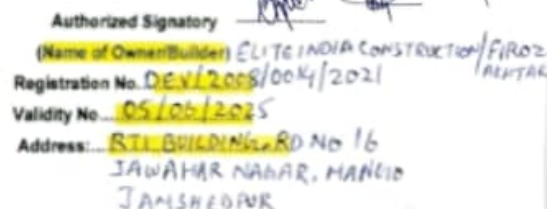 Authorized Signatory
(Name of Owner/Builder) ELITE INDIA CONSTRUCTION/FIROZ AKHTAR
Registration No. DEV/2008/0014/2021
Validity No. 05/06/2025
Address:.. RTI BUILDING, RD NO 16
JAWAHAR NAGAR, MANGO
JAMSHEDPUR